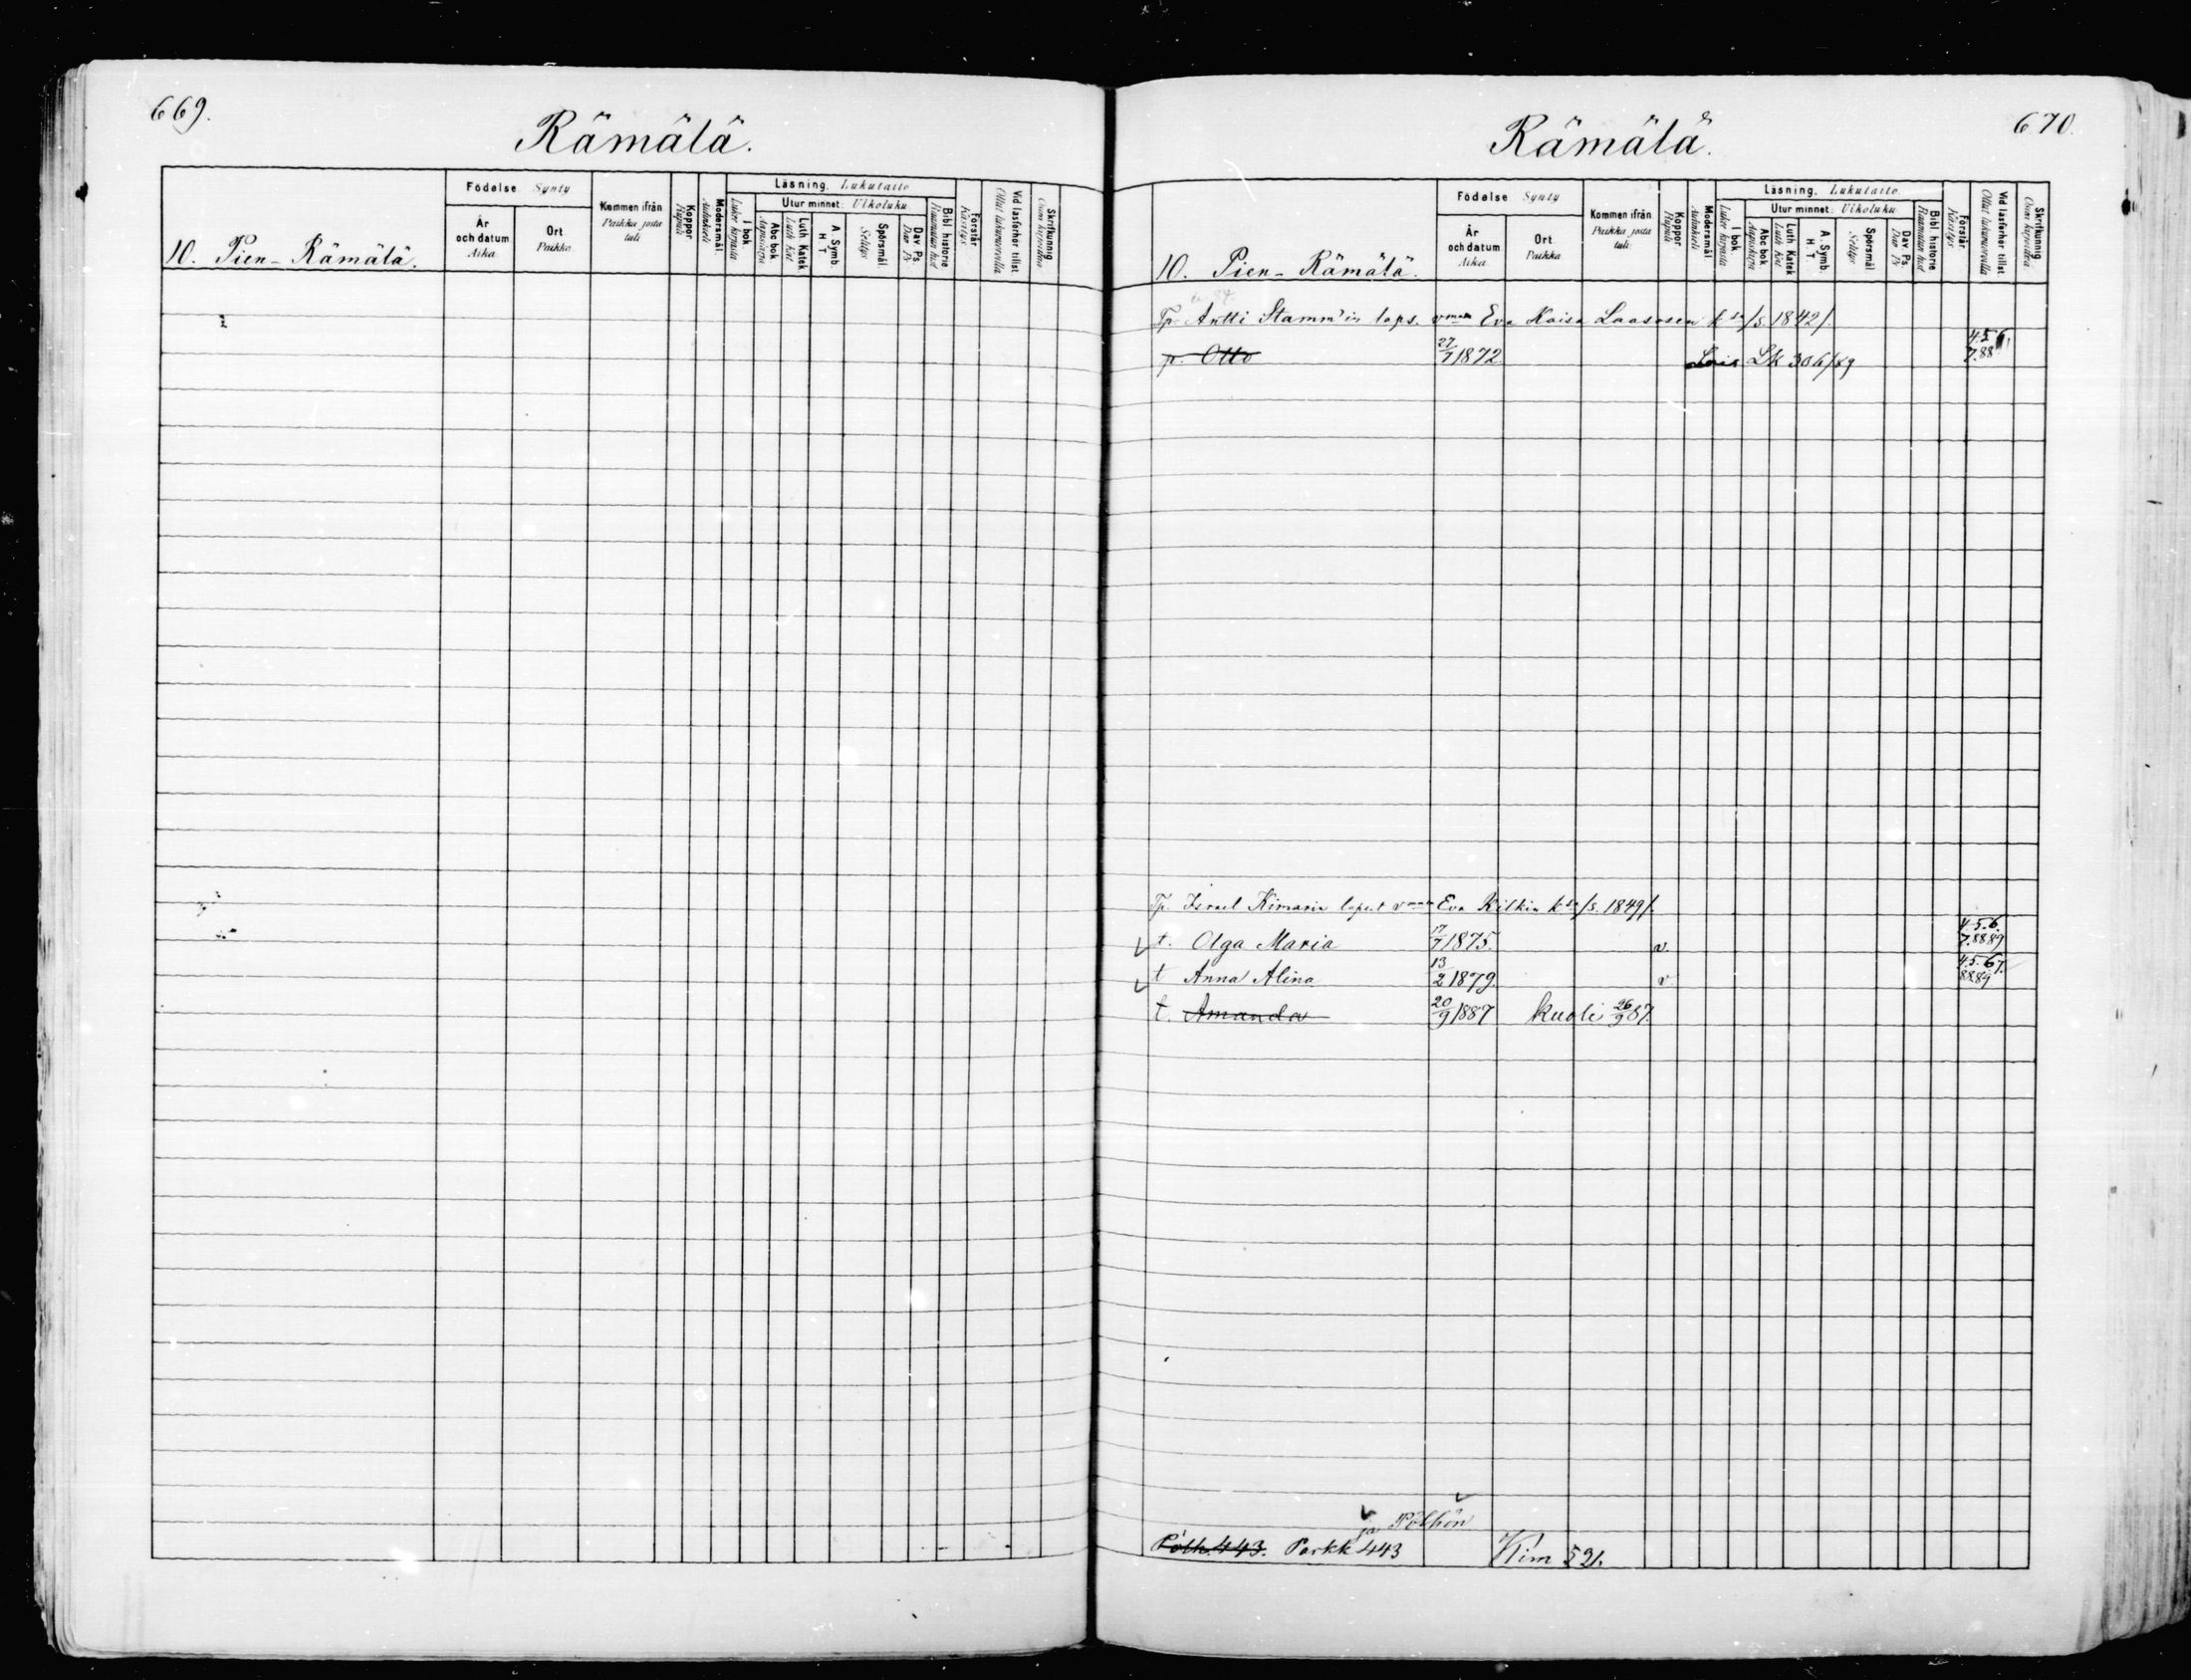 669.
Rämälä.
10. Pien-Rämälä.
Födelse. Synty
År och datum Aika
Ort Paikka
Kommen ifrån Paikka josta tuli
Koppor Rupuli
Modersmål. Äidinkieli
Läsning. Lukutaito
I bok. Lukee kirjasta
Utur minnet: Ulkoluku
Abc bok Aapiskirja
Luth Katek Luth Kat
A. Symb. H T
Spörsmål. Selitys
Dav. Ps. Dav Ps
Bibl historie Raamatun hist
Förstår Käsitys
Vid läsförhör tillst Ollut lukukinkereillä
Skrifkunnig Osaa kirjoittaa
670.
Rämälä.
10. Pien-Rämälä.
Födelse Synty
År och datum Aika
Ort Paikka
Kommen ifrån Paikka josta tuli
Koppor Rupuli
Modersmål Äidinkieli
Läsning. Lukutaito
I bok. Lukee kirjasta
Utur minnet: Ulkoluku
Abc bok Aapiskirja
Luth Katek Luth Kat
A. Symb. H T
Spörsmål Selitys
Dav. Ps. Dav Ps
Bibl historie Raamatun hist
Förstår Käsitys
Vid läsförhör tillst Ollut lukukinkereillä
Skrifkunnig Osaa kirjoittaa
Tp. Antti Stamm'in laps. vmon Eva Kaisa Laososen ksa /s. 1842/.
p. Otto 27/7 1872. Lk 306/89 4.5.6 7.88
Tp. Israel Kimarin lapset vmon Eva Kilkin ksa /s. 1849/.
t. Olga Maria 17/7 1875. v. 4.5.6. 7.8889
t Anna Alina 13/2 1879. v 4.5.67. 8889
t. Amanda 20/9 1887 kuoli 26/9 87.
ja Pölhön
Pölh. 443. Parkk 443 Kim 521.